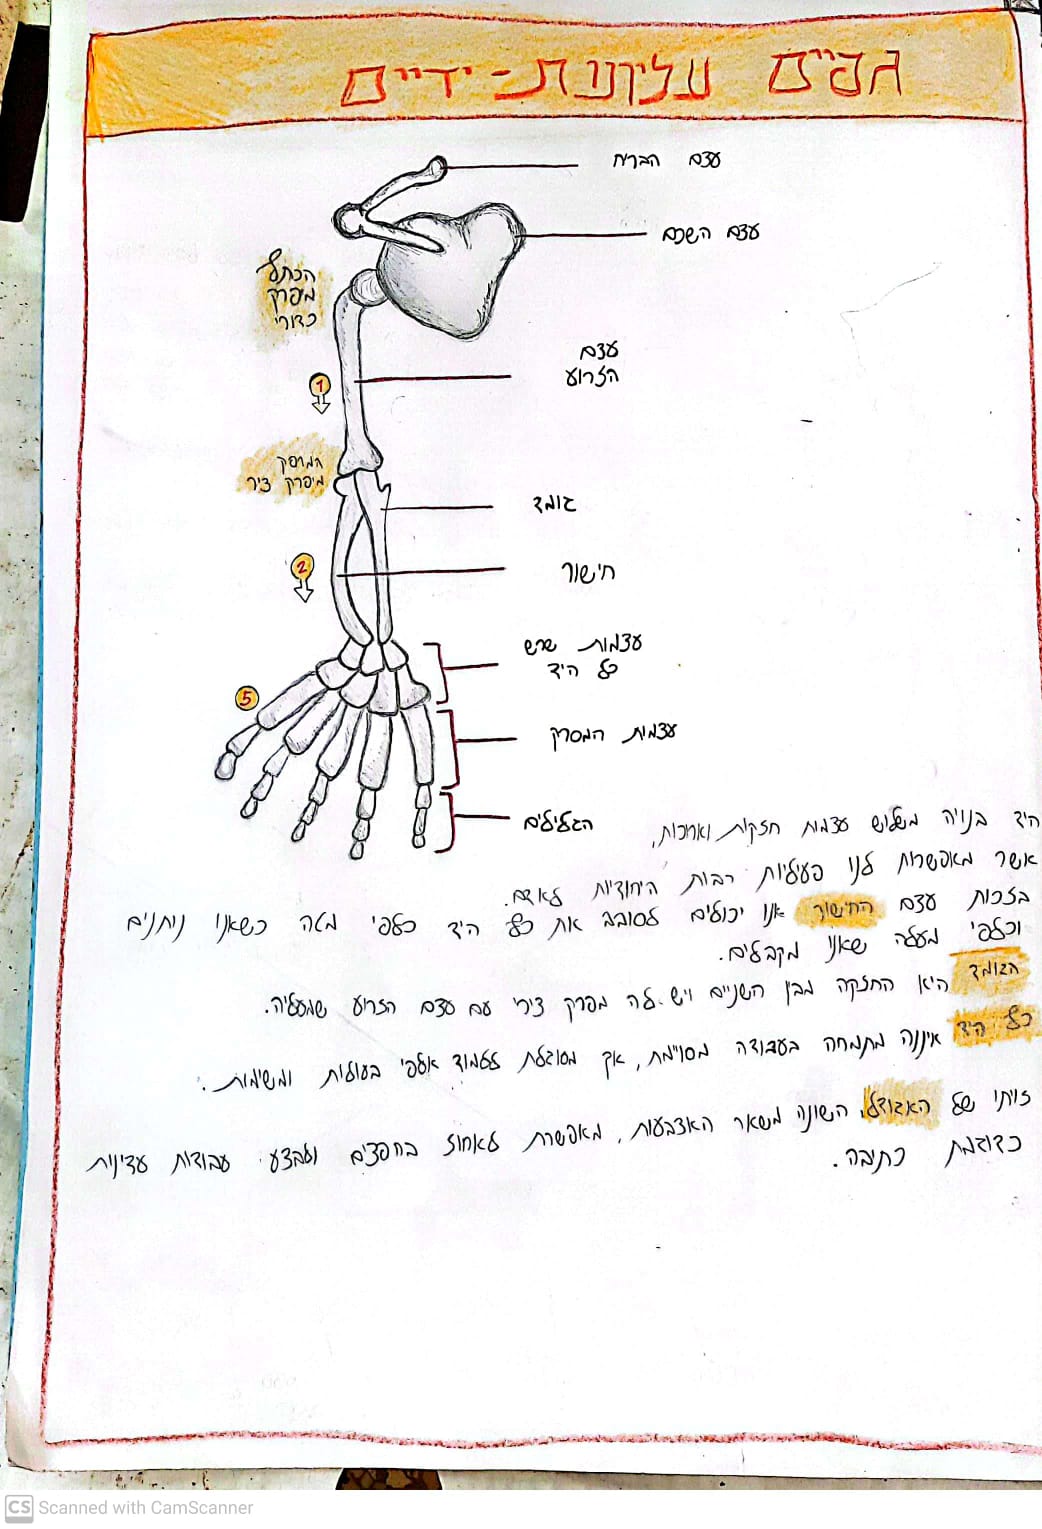 גפיים עליונות - ידיים
עצם הבריח
עצם השכם
הכתף
מפרק
כדורי
עצם
הזרוע
1
המרפק
מיפרק ציר
גומד
2
חישור
עצמות שרש
כף היד
5
עצמות המסרק
הגלילים
היד בנויה משלוש עצמות חזקות וארוכות,
אשר מאפשרות לנו פעילויות רבות היחודיות לאדם.
בזכות עצם החישור אנו יכולים לסובב את כף היד כלפי מטה כשאנו נותנים
וכלפי מעלה שאנו מקבלים.
הגומד היא החזקה מבין השניים ויש לה מפרק צירי עם עצם הזרוע שמעליה.
כף היד איננה מתמחה בעבודה מסויימת, אך מסוגלת ללמוד אלפי פעולות ומשימות.
זויתו של האגודל, השונה משאר האצבעות, מאפשרת לאחוז בחפצים ולבצע עבודות עדינות
כדוגמת כתיבה.
CS Scanned with CamScanner